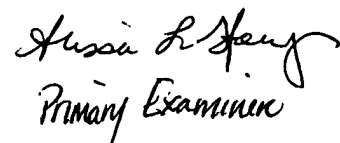 Alissa L Hoey
Primary Examiner